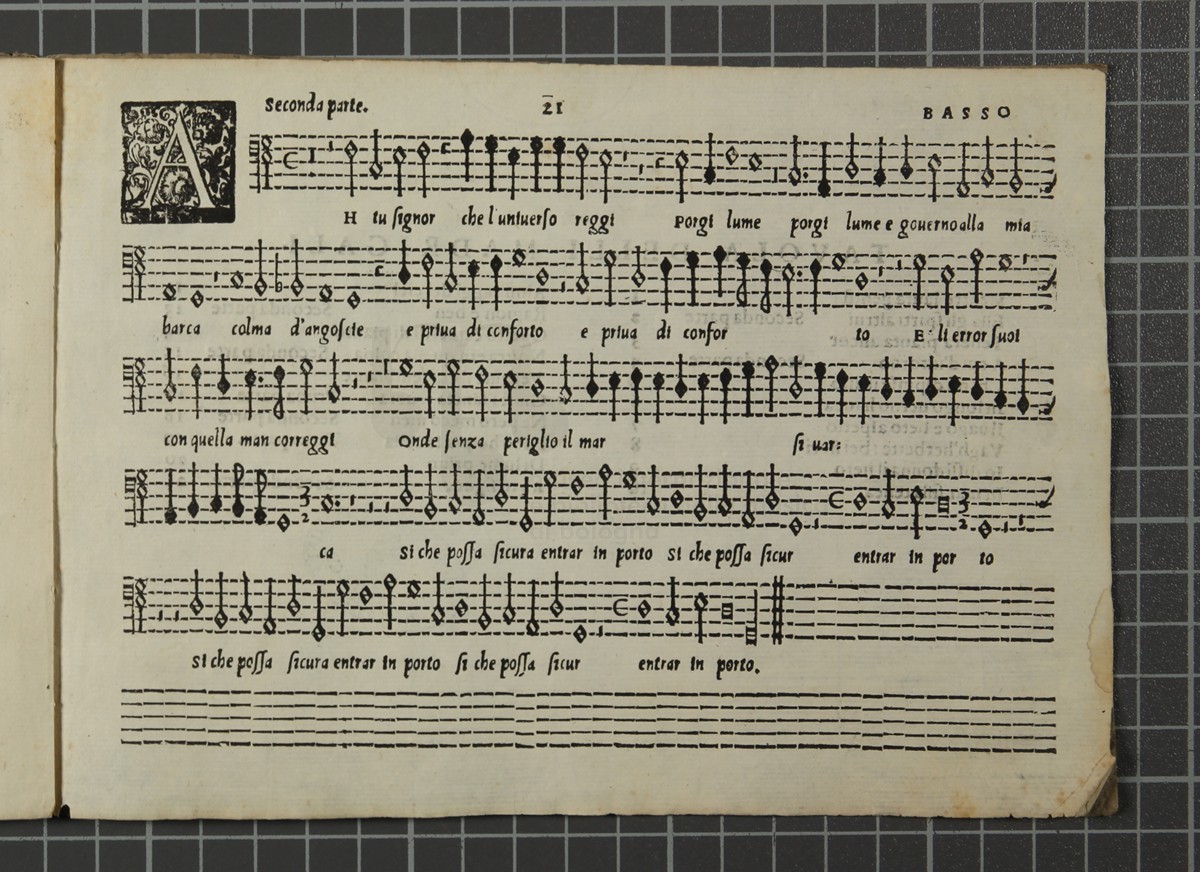 Seconda parte. 21 BASSO
AH tu ſignor che l'uniuerſo reggi Porgi lume porgi lume e gouerno alla mia
barca colma d'angoſcie e priua di conforto e priua di confor to E' li error ſuoi
con quella man correggi Onde ſenza periglio il mar ſi uar:
ca Si che poſſa ſicura entrar in porto Si che poſſa ſicur entrar in por to
Si che poſſa ſicura entrar in porto ſi che poſſa ſicur entrar in porto.